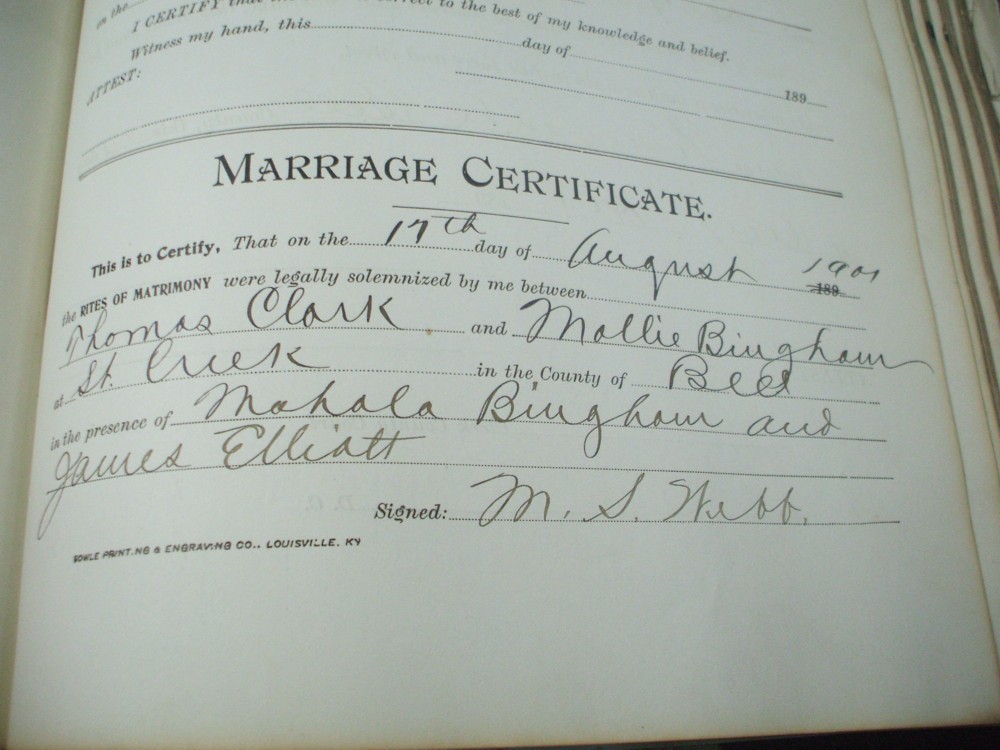 in the
I CERTIFY that the correct to the best of my knowledge and belief.
Witness my hand, this day of 189
ATTEST:
MARRIAGE CERTIFICATE.
This is to Certify, That on the 17th day of August 1901 189
the RITES OF MATRIMONY were legally solemnized by me between
Thomas Clark and Mollie Bingham
at St. Creek in the County of Bell
in the presence of Mahala Bingham and
James Elliott
Signed: M. S. Webb.
PRINTING & ENGRAVING CO., LOUISVILLE, KY